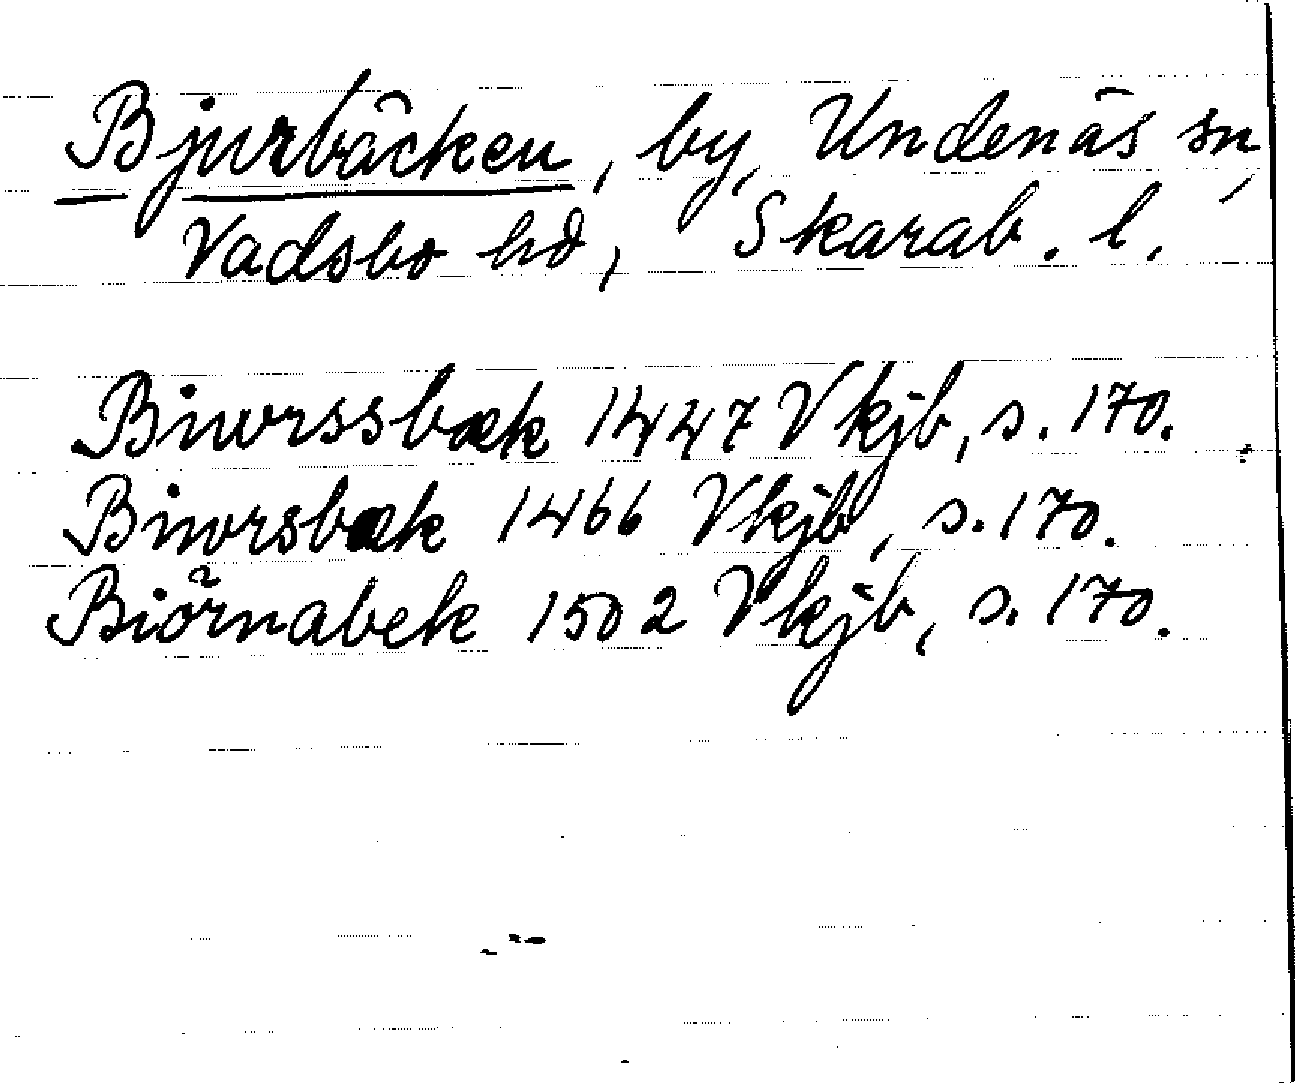 Bjurbäcken, by, Undenäs sn,
Vadsbo hd, Skarab. l.
Biwrssbæk 1447 Vkjb, s. 170.
Biwrsbæk 1466 Vkjb, s. 170.
Biörnabek 1502 Vkjb, s. 170.